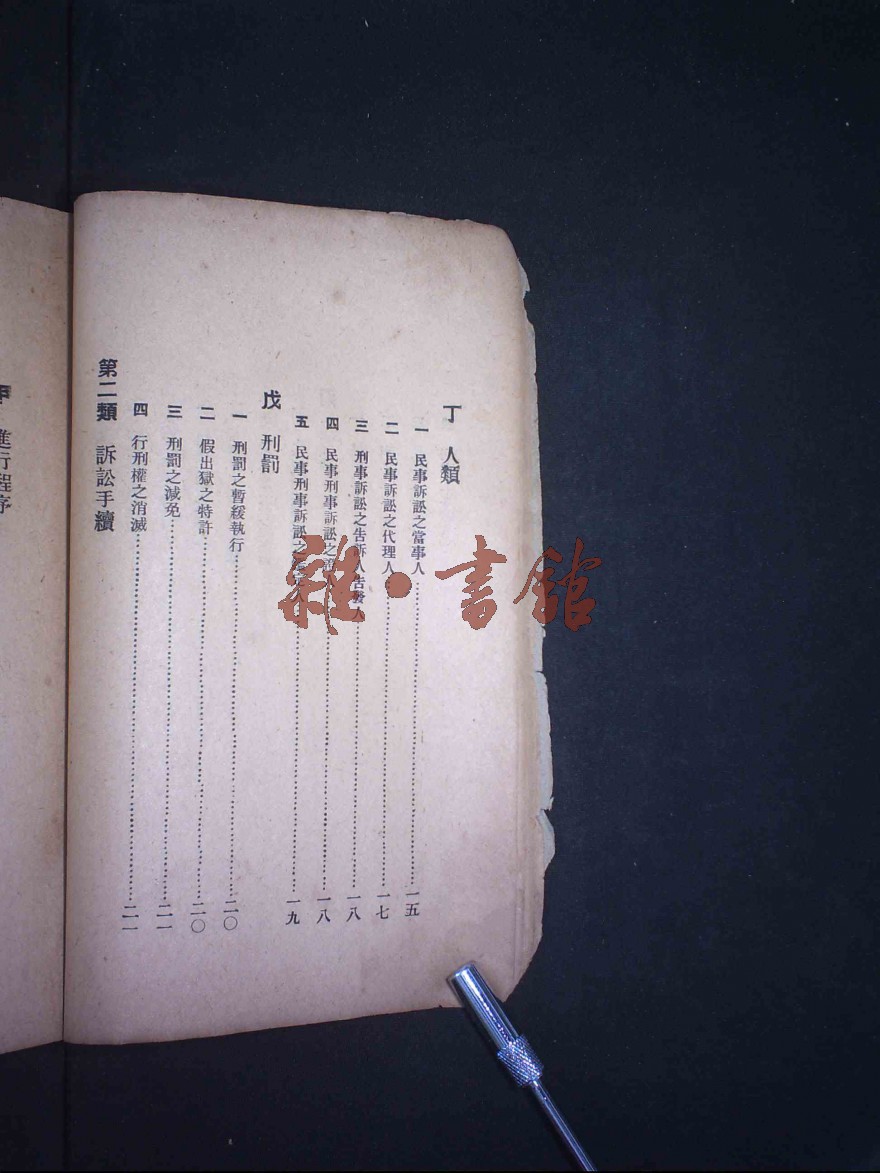 丁 人類
一 民事訴訟之當事人……一五
二 民事訴訟之代理人……一七
三 刑事訴訟之告訴人告發人……一八
四 民事刑事訴訟之證人……一八
五 民事刑事訴訟之人……一九
戊 刑罰
一 刑罰之暫緩執行……二〇
二 假出獄之特許……二〇
三 刑罰之減免……二一
四 行刑權之消滅……二一
第二類 訴訟手續
甲 進行程序
雜·書館